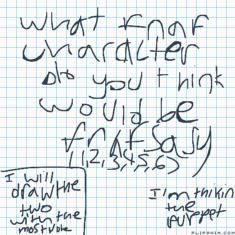 what fnaf
character
do you think
would be
first sasy
(1,2,3,4,5,6)
I will
draw the
two
with the
most vote
I'm thikin
the
puppet
FLIPANIM.COM